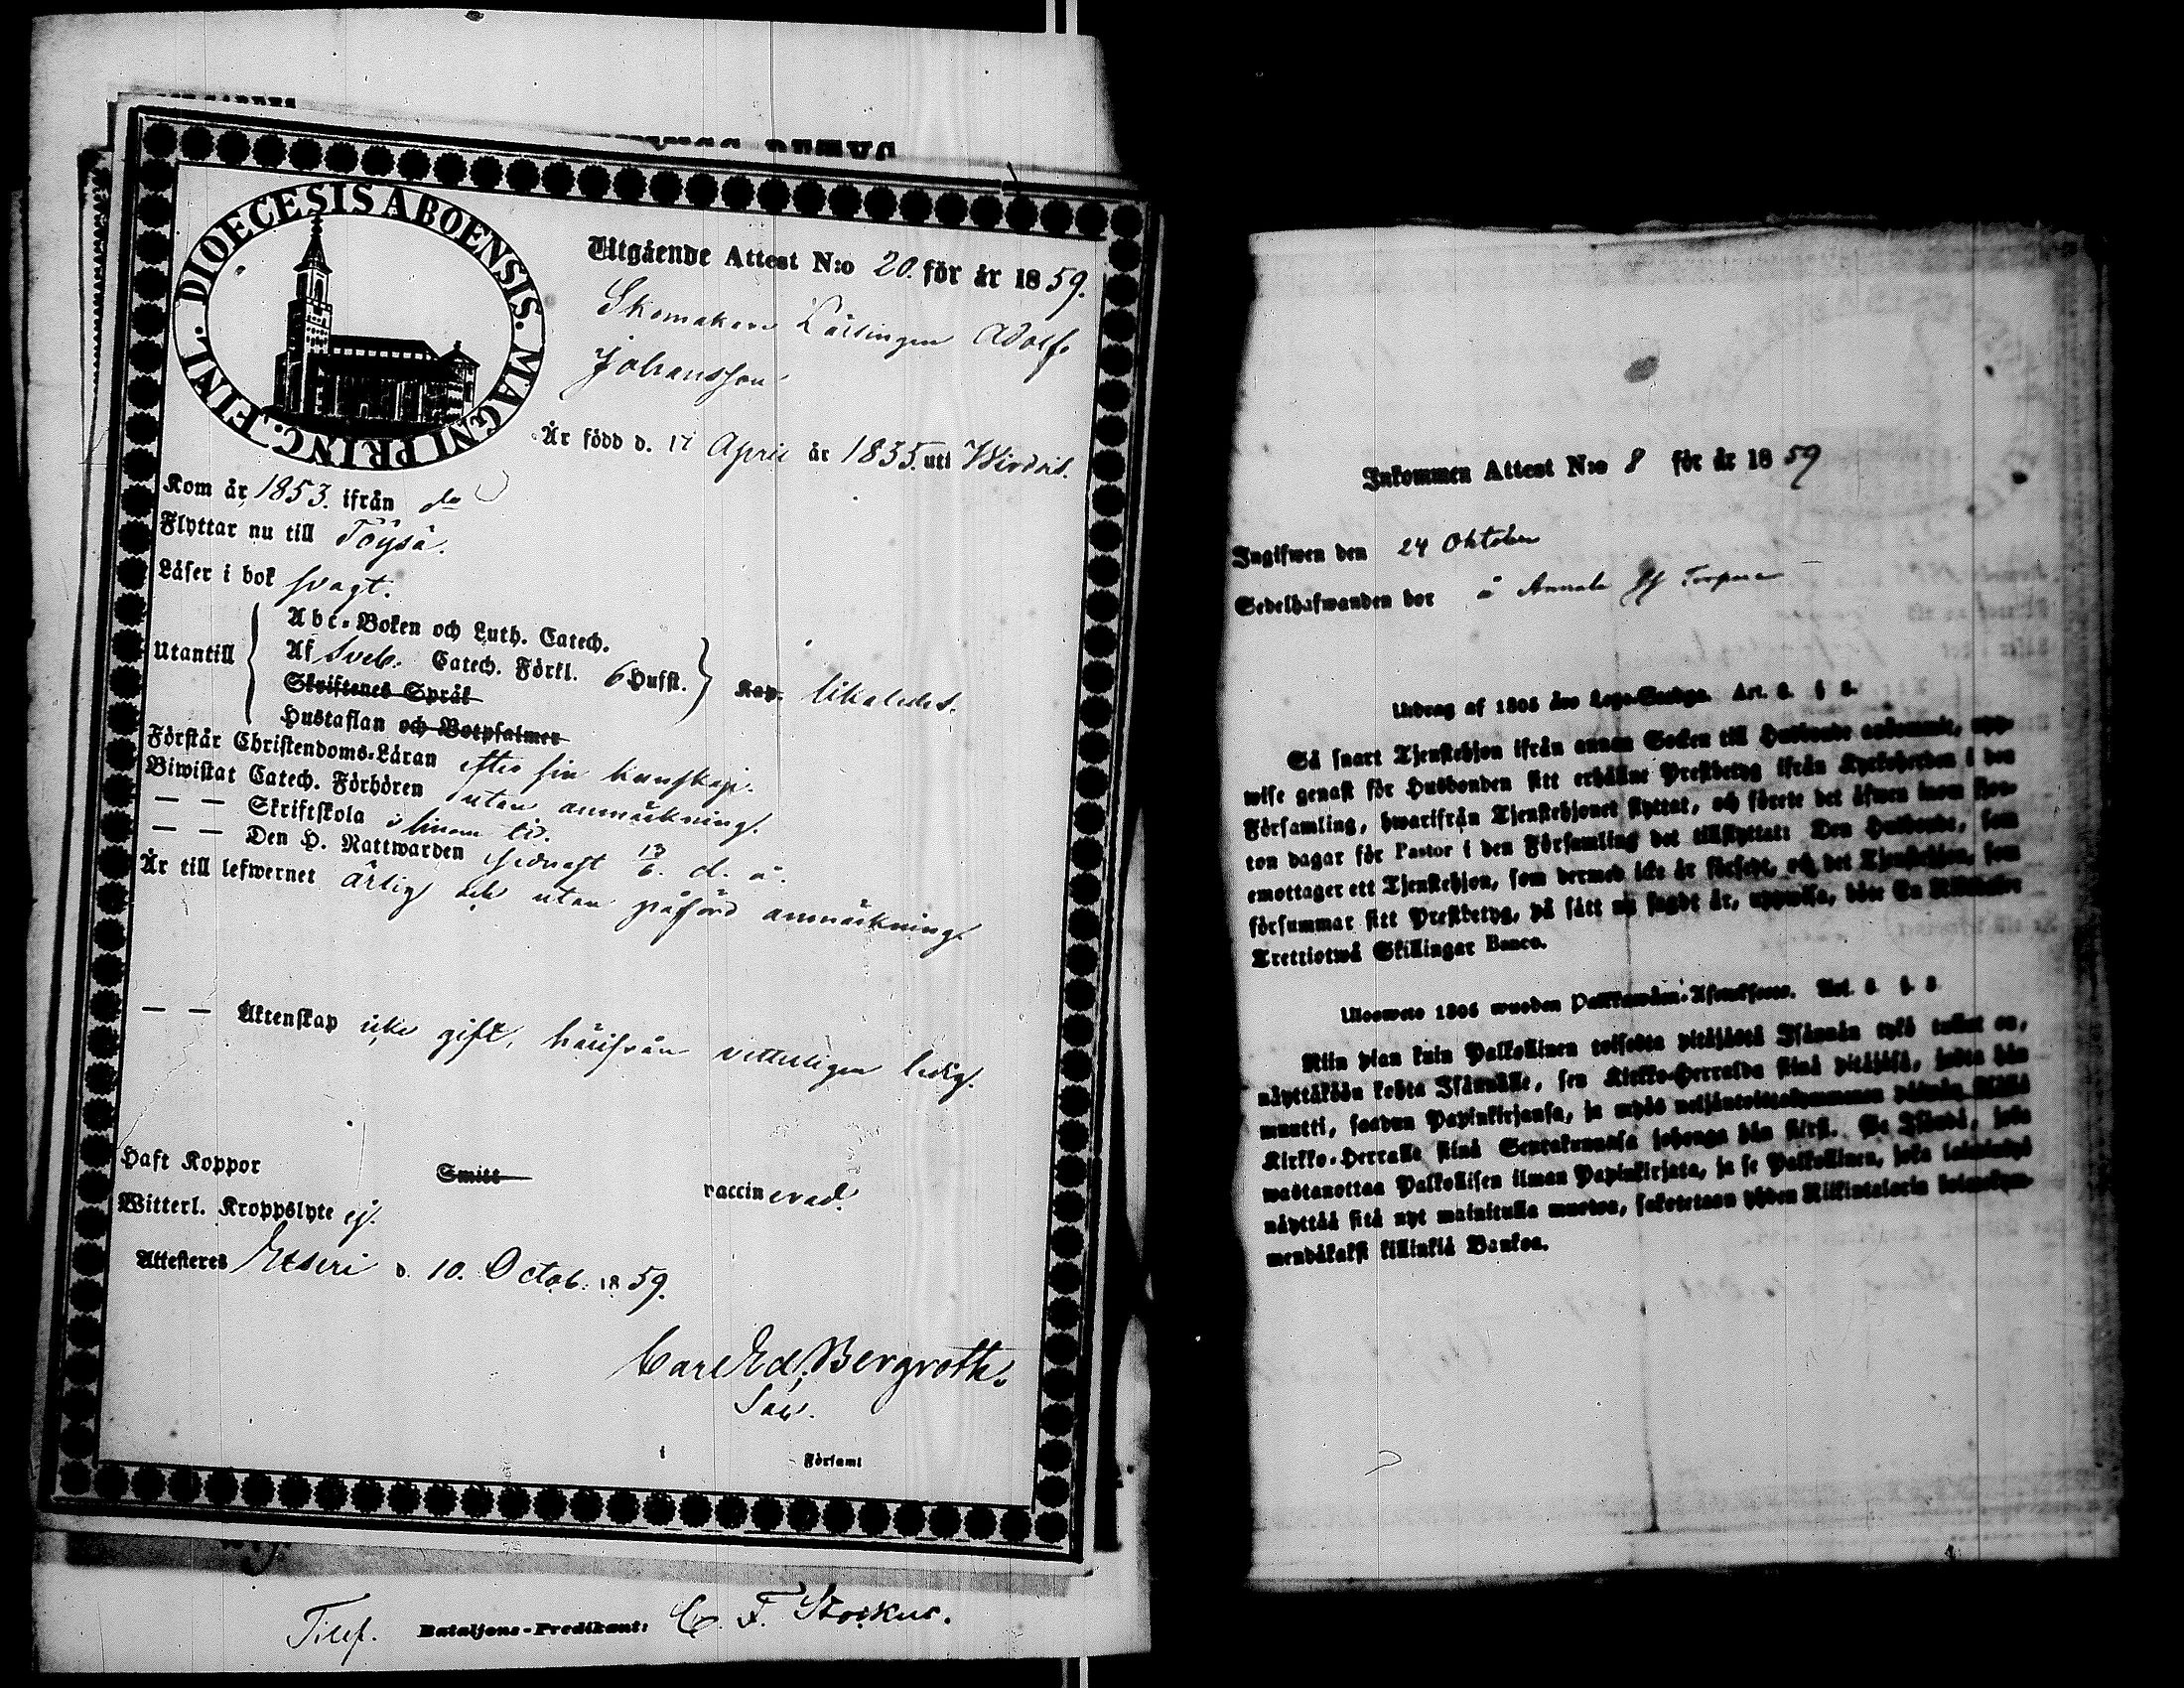 DIOECESIS ABOENSIS. MAGNI PRINC. FINL.
Utgående Attest N:o 20. för år 1859.
Skomakare Lärlingen Adolf
Johansson
Är född d. 17 April år 1835. uti Wirdois.
Kom år 1853. ifrån do
Flyttar nu till Töysä.
Läser i bok svagt.
Utantill
Abc-Boken och Luth. Catech.
Af Sveb. Catech. Förkl. 6 Hufst.
Skriftenes Språk
Hustaflan och Botpsalmer
Kap. likaledes.
Förstår Christendoms-Läran efter sin kunskap.
Biwistat Catech. Förhören utan anmärkning.
— — Skriftskola i sinom tid.
— — Den H. Nattwarden sednast 13/6. d. å.
Är till lefwernet ärlig och utan påförd anmärkning.
— — Äktenskap icke gift, härifrån vitterligen ledig.
Haft Koppor Smitt vaccinerad.
Witterl. Kroppslyte ej.
Attesteres Etseri d. 10. Octob. 1859.
Carl Ed. Bergroth.
Sac.
i Församl
Till. Bataljons-Predikant: C. F. Stockus.
Inkommen Attest N:o 8 för år 1859
Ingifwen den 24 Oktober
Sedelhafwanden bor å Annala Torpare
Utdrag af 1805 års Lego-Stadga. Art. 6. § 8.
Så snart Tjenstehjon ifrån annan Socken till Husbonde ankommit, upp-
wise genast för Husbonden sitt erhållne Prestbetyg ifrån Kyrkoherden i den
Församling, hwarifrån Tjenstehjonet flyttat, och förete det äfwen inom fjor-
ton dagar för Pastor i den Församling det tillflyttat: Den Husbonde, som
emottager ett Tjenstehjon, som dermed icke är försedt, och det Tjenstehjon, som
försummar sitt Prestbetyg, på sätt nu sagdt är, uppwisa, böte En Riksdaler
Trettiotwå Skillingar Banco.
Ulosweto 1805 wuoden Palkkawäen-Asetuksesta. Art. 6. §. 8
Niin pian kuin Palkollinen toisesta pitäjästä Isännän tykö tullut on,
näyttäköön kohta Isännälle, sen Kirkko-Herralda siinä pitäjäsä, josta hän
muutti, saadun Papinkirjansa, ja myös neljäntoistakymmenen päiwän sisällä
Kirkko-Herralle siinä Seurakunnasa johonga hän siirsi. Se Isändä, joka
wastanottaa Palkollisen ilman Papinkirjata, ja se Palkollinen, joka laiminlyö
näyttää sitä nyt mainitulla muodon, sakotetaan yhden Riikintalerin kolmekym-
mendäkaksi killinkiä Bankoa.